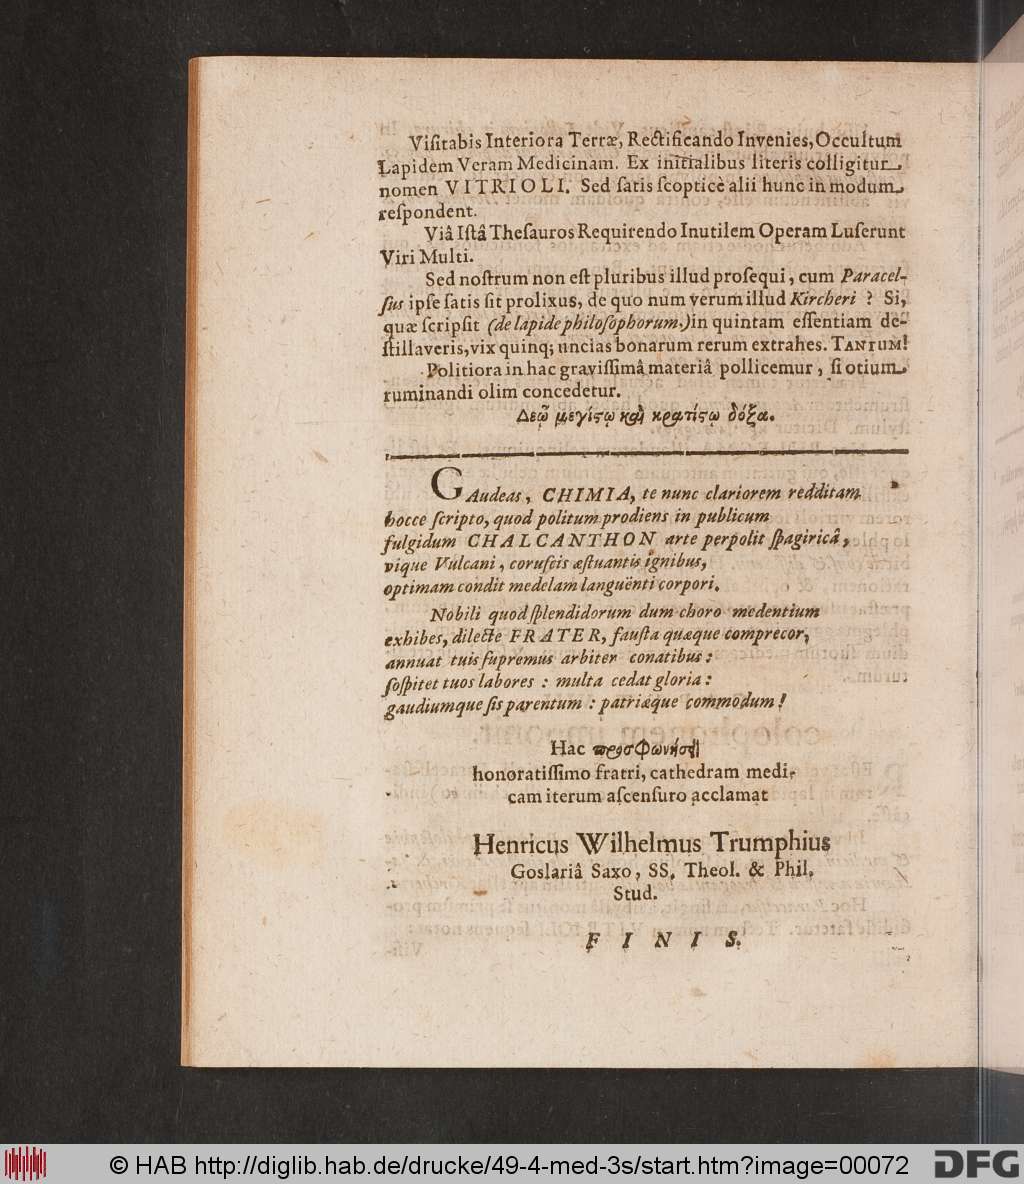 Viſitabis Interiora Terræ, Rectificando Invenies, Occultum
Lapidem Veram Medicinam. Ex initialibus literis colligitur
nomen VITRIOLI. Sed ſatis ſcopticè alii hunc in modum
reſpondent.
Viâ Iſtâ Theſauros Requirendo Inutilem Operam Luſerunt
Viri Multi.
Sed noſtrum non eſt pluribus illud proſequi, cum Paracel-
ſus ipſe ſatis ſit prolixus, de quo num verum illud Kircheri ? Si,
quæ ſcripſit (de lapide philoſophorum,) in quintam eſſentiam de-
ſtillaveris, vix quinq; uncias bonarum rerum extrahes. TANTUM!
Politiora in hac graviſſimâ materiâ pollicemur, ſi otium
ruminandi olim concedetur.
Δεῷ μεγίϛῳ καὶ κρατίϛῳ δόξα.
GAudeas, CHIMIA, te nunc clariorem redditam
hocce ſcripto, quod politum prodiens in publicum
fulgidum CHALCANTHON arte perpolit ſpagiricâ,
vique Vulcani, coruſcis æſtuantis ignibus,
optimam condit medelam languënti corpori.
Nobili quod ſplendidorum dum choro medentium
exhibes, dilecte FRATER, fauſta quæque comprecor,
annuat tuis ſupremus arbiter conatibus:
ſoſpitet tuos labores : multa cedat gloria:
gaudiumque ſis parentum : patriæque commodum!
Hac προσφωνήσει
honoratiſſimo fratri, cathedram medi-
cam iterum aſcenſuro acclamat
Henricus Wilhelmus Trumphius
Goslariâ Saxo, SS. Theol. & Phil.
Stud.
FINIS.
© HAB http://diglib.hab.de/drucke/49-4-med-3s/start.htm?image=00072
DFG